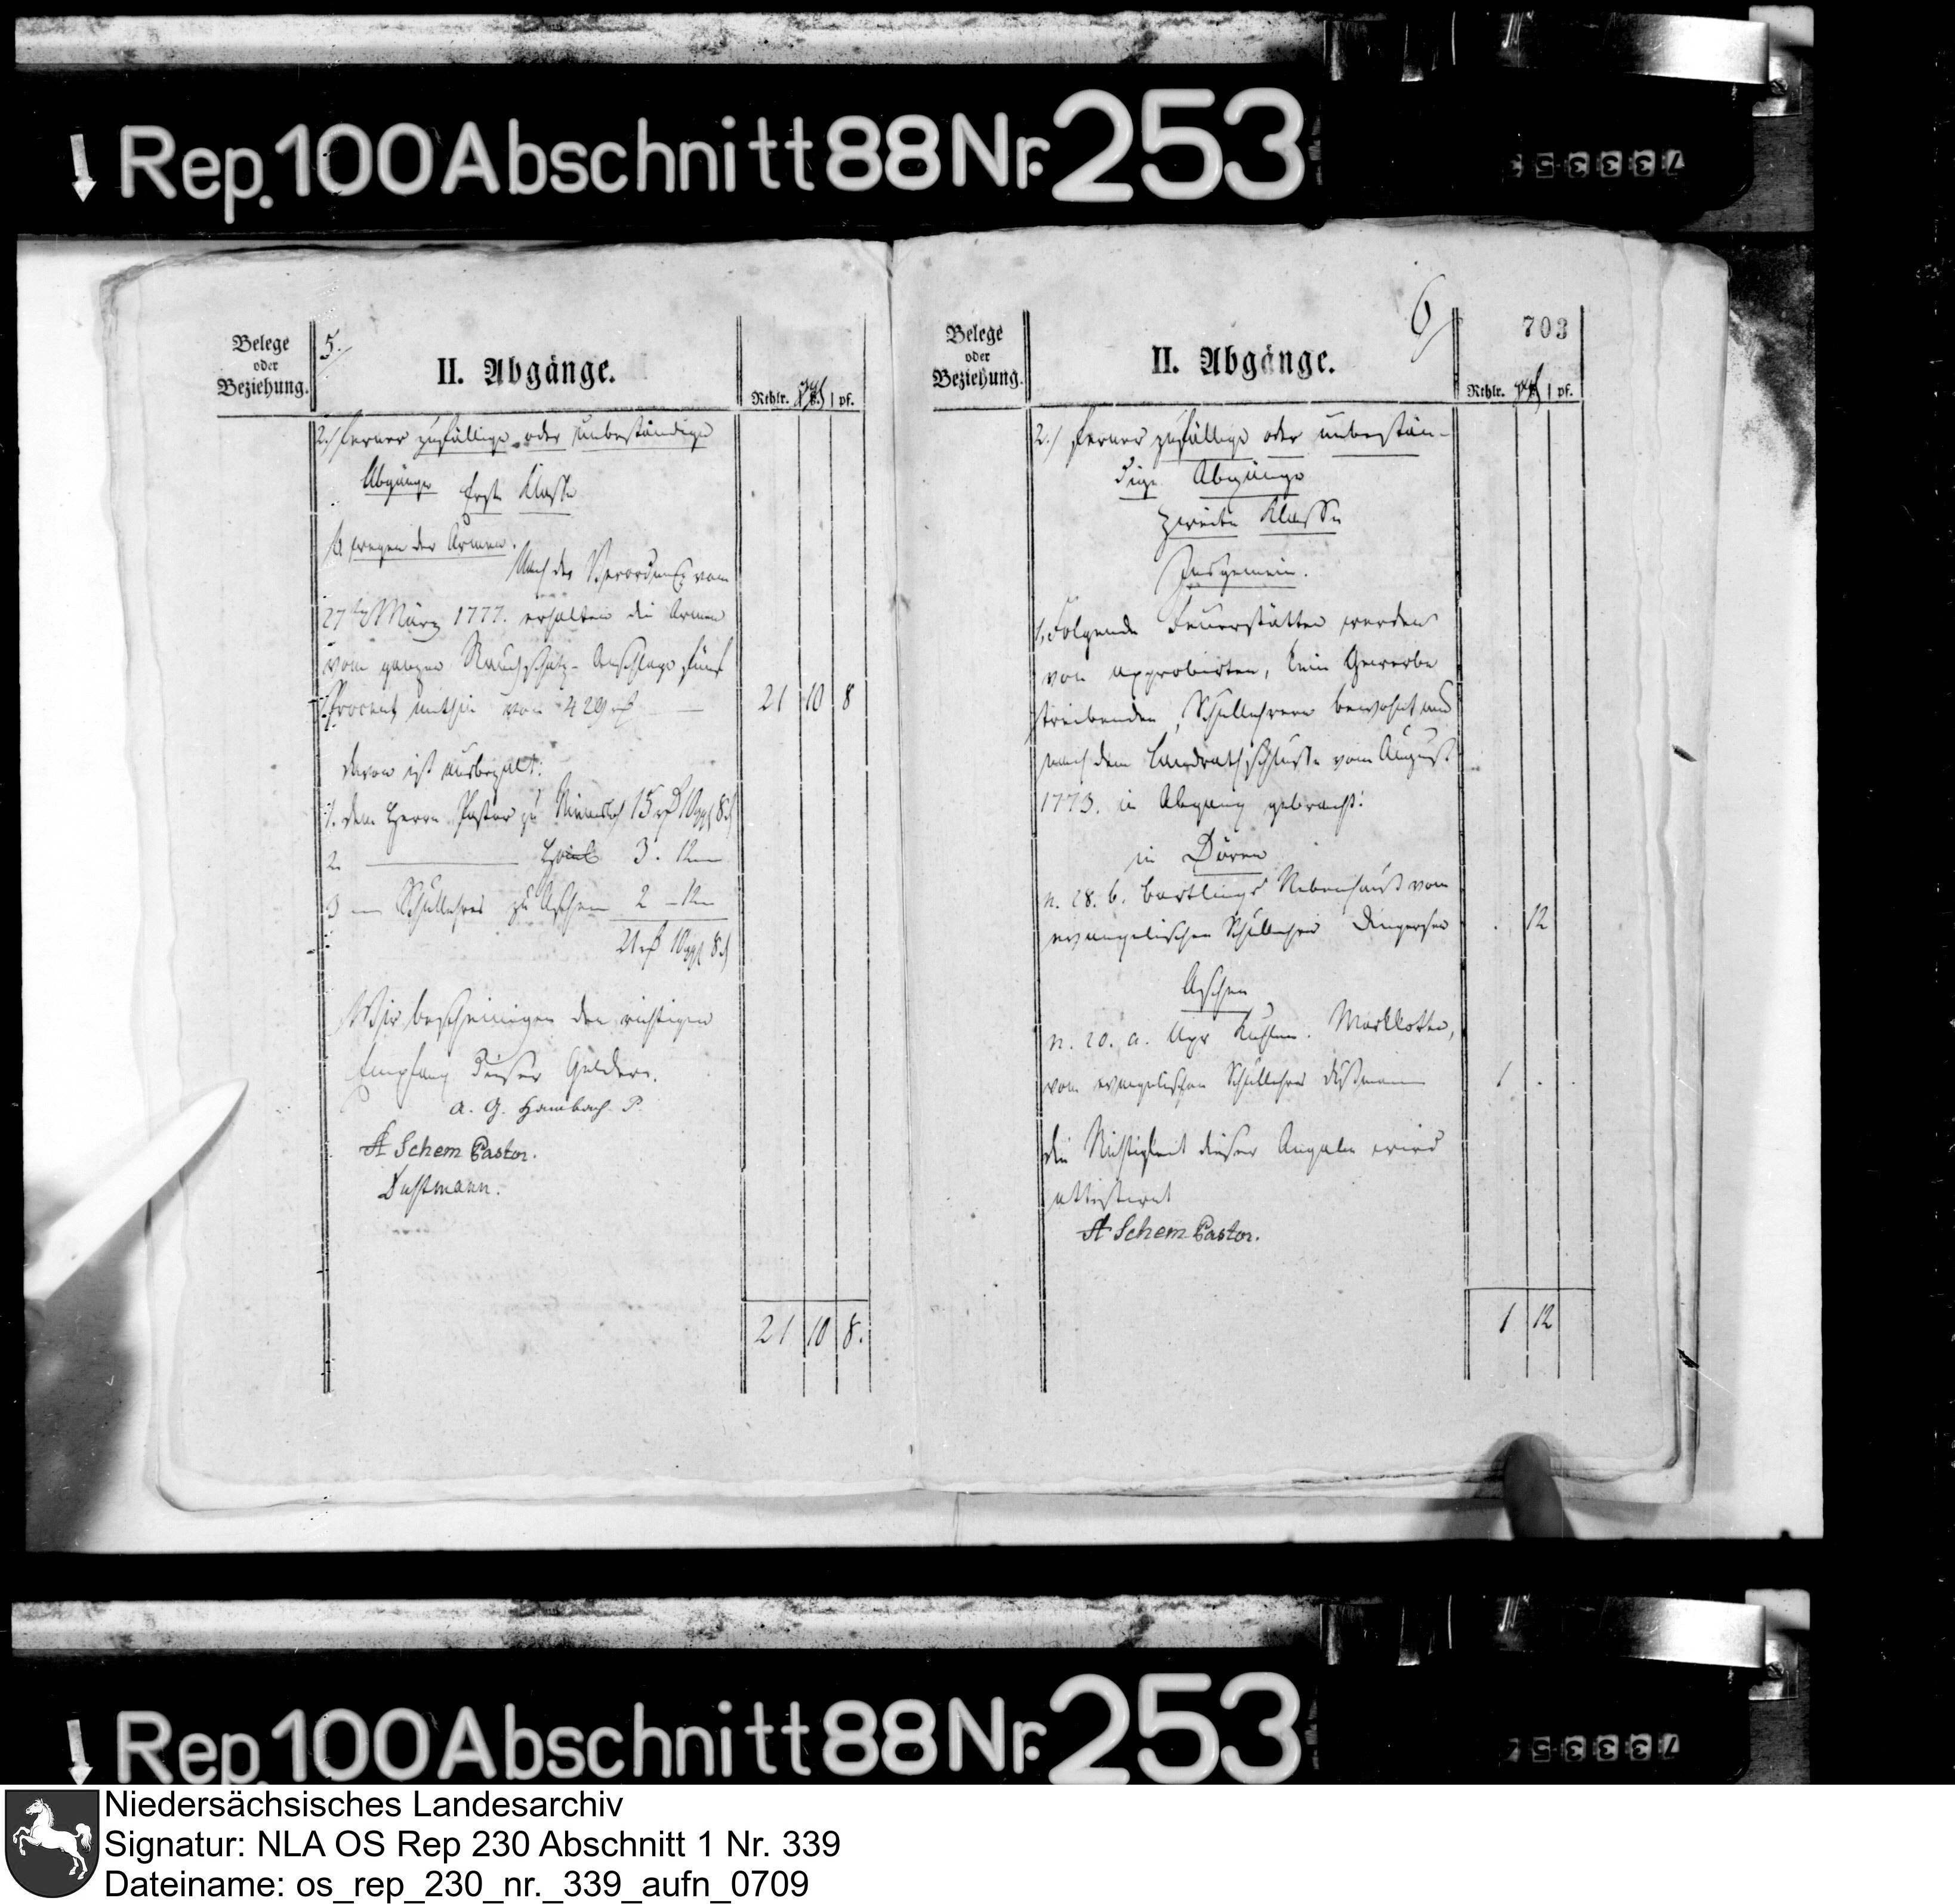 Rep. 100 Abschnitt 88 Nr. 253
73335
Belege
oder
Beziehung.
5.
II. Abgänge.
Rthlr. ggl pf.
2.) Ferner zufällige oder unbeständige
Abgänge Erste Klasse
b wegen der Armen.
Nach der Verordnung vom
27ten März 1777. erhalten die Armen
vom ganzen Rauchschatz-Anschlage fünf
Procent mithin von 429 rß 21 10 8
davon ist ausbezalt:
1. dem Herrn Pastor zu 15 rß 10 ggl 8 d
2. Hoiel 3. 12
3 — Schullehrer zu Aschen 2 — 12
21 rß 10 ggl 8 d
Wir bescheinigen den richtigen
Empfang dieser Gelder.
A. G. Hambach. P.
A Schem Pastor.
Dustmann.
21 10 8.
Belege
oder
Beziehung.
6
703
II. Abgänge.
Rthlr. ggl pf.
2.) Ferner zufällige oder unbestän-
dige Abgänge
Zweite Klasse
Insgemein.
1. Folgende Feuerstätten werden
von approbirten, kein Gewerbe
treibenden, Schullehrern bewohnt und
nach dem Landrathsschlusse vom August
1773. in Abgang gebracht:
in Dören
n. 28. b. Bartlings Nebenhaus vom
evangelischen Schullehrer . 12
Aschen
n. 20. a. Markkotten,
vom evangelischen Schullehrer Dustmann 1 . .
die Richtigkeit dieser Angabe wird
attestiret
A Schem Pastor.
1 12
Rep. 100 Abschnitt 88 Nr. 253
73335
Niedersächsisches Landesarchiv
Signatur: NLA OS Rep 230 Abschnitt 1 Nr. 339
Dateiname: os_rep_230_nr._339_aufn_0709